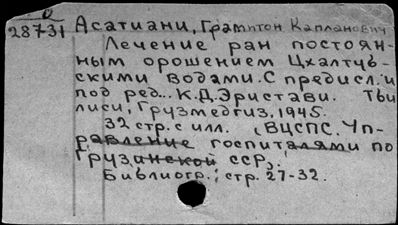 0
28731
Асатиани, Грамптон Капланович
Лечение ран постоян-
ным орошением Цхалтуб-
скими водами. С предисл. и
под ред... К.Д. Эристави. Тби
лиси, Грузмедгиз, 1945.
32 стр. с илл. (ВЦСПС. Уп-
равление госпиталями по
Грузинской ССР).
Библиогр.: стр. 27-32.